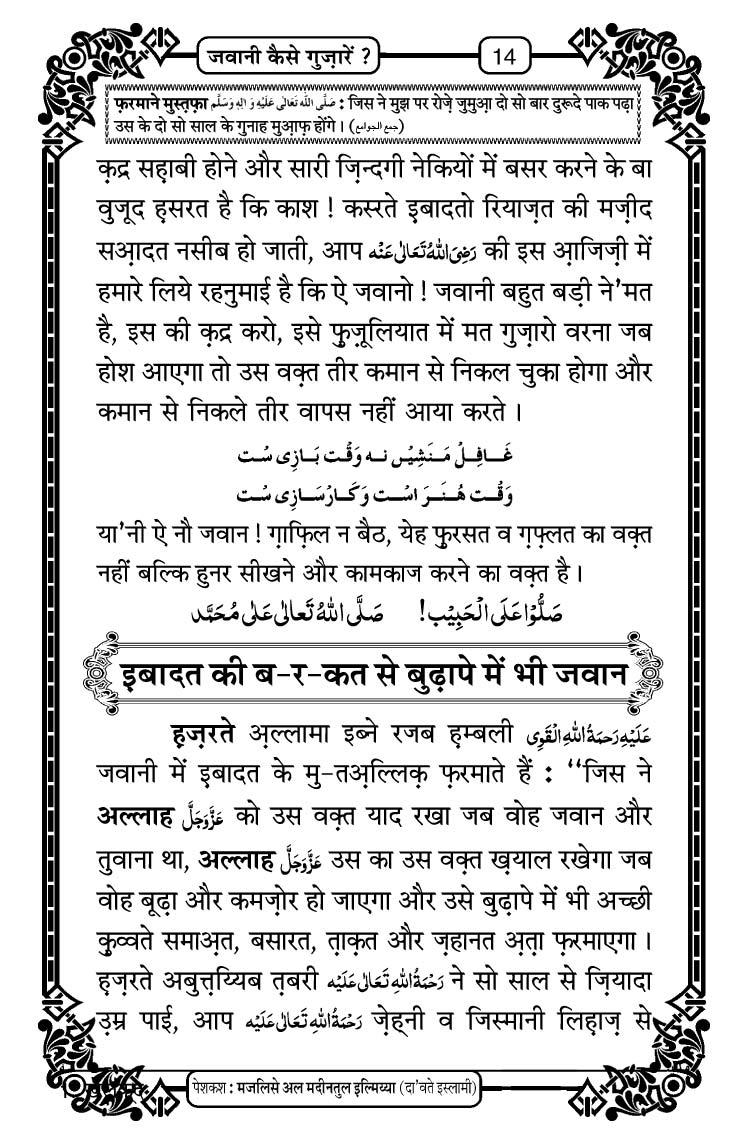 जवानी कैसे गुज़ारें ?
14
फ़रमाने मुस्तफ़ा صَلَّى اللّٰهُ تَعَالٰى عَلَيْهِ وَاٰلِهٖ وَسَلَّم : जिस ने मुझ पर रोज़े जुमुआ़ दो सो बार दुरूदे पाक पढ़ा
उस के दो सो साल के गुनाह मुआ़फ़ होंगे । (جمع الجوامع)
क़द्र सह़ाबी होने और सारी ज़िन्दगी नेकियों में बसर करने के बा
वुजूद ह़सरत है कि काश ! कस्रते इबादतो रियाज़त की मज़ीद
सआ़दत नसीब हो जाती, आप رَضِىَ اللّٰهُ تَعَالٰى عَنْه की इस आ़जिज़ी में
हमारे लिये रहनुमाई है कि ऐ जवानो ! जवानी बहुत बड़ी ने’मत
है, इस की क़द्र करो, इसे फ़ुज़ूलियात में मत गुज़ारो वरना जब
होश आएगा तो उस वक़्त तीर कमान से निकल चुका होगा और
कमान से निकले तीर वापस नहीं आया करते ।
غَافِلْ مَنَشِيْں نَه وَقْت بَازِى سْت
وَقْت هُنَر اَسْت وَكَارسَازِى سْت
या’नी ऐ नौ जवान ! ग़ाफ़िल न बैठ, येह फ़ुरसत व ग़फ़्लत का वक़्त
नहीं बल्कि हुनर सीखने और कामकाज करने का वक़्त है ।
صَلُّوْا عَلَى الْحَبِيْب! صَلَّى اللّٰهُ تَعَالٰى عَلٰى مُحَمَّد
इबादत की ब-र-कत से बुढ़ापे में भी जवान
ह़ज़रते अ़ल्लामा इब्ने रजब ह़म्बली عَلَيْهِ رَحمَةُ اللّٰهِ الْقَوِى
जवानी में इबादत के मु-तअ़ल्लिक़ फ़रमाते हैं : ‘‘जिस ने
अल्लाह عَزَّوَجَلَّ को उस वक़्त याद रखा जब वोह जवान और
तुवाना था, अल्लाह عَزَّوَجَلَّ उस का उस वक़्त ख़याल रखेगा जब
वोह बूढ़ा और कमज़ोर हो जाएगा और उसे बुढ़ापे में भी अच्छी
कुव्वते समाअ़त, बसारत, त़ाक़त और ज़हानत अ़त़ा फ़रमाएगा ।
ह़ज़रते अबुत़्त़य्यिब त़बरी رَحْمَةُ اللّٰهِ تَعَالٰى عَلَيْه ने सो साल से ज़ियादा
उ़म्र पाई, आप رَحْمَةُ اللّٰهِ تَعَالٰى عَلَيْه ज़ेह्नी व जिस्मानी लिह़ाज़ से
पेशकश : मजलिसे अल मदीनतुल इ़ल्मिय्या (दा’वते इस्लामी)